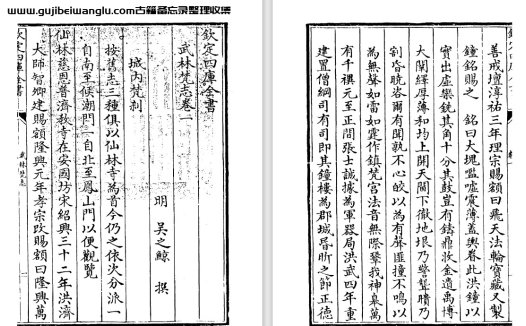 www.gujibeiwanglu.com古籍备忘录整理收集
欽定四庫全書
武林梵志卷一
明 吳之鯨 撰
城内梵刹
按舊志三種俱以仙林寺為首今仍之依次分派一
自南至候潮門一自北至鳳山門以便觀覽
仙林慈恩普濟教寺在安國坊宋紹興三十二年洪濟
大師智卿建賜額隆興元年孝宗改賜額曰隆興萬
欽定四庫全書
武林梵志
善戒壇淳祐三年理宗賜額曰飛天法輪寶藏又製
鐘銘賜之 銘曰大塊噫噓橐薄蓋輿眷此洪鐘以
實出虛樂銑其角十分其鼓豈有鑄鼎收金遺禹博
大閈繹厚薄和均上開天闕下徹地垠乃警聾聵乃
剖昏咨爾有聞孰不心皎以為有聲匪撞不鳴以
為無聲如雷如霆作鎮梵宫法音無際鞏我神皋萬
有千禩元至正間張士誠據為軍器局洪武四年重
建置僧綱司有司即其鐘樓為郡城昏昕之節正德